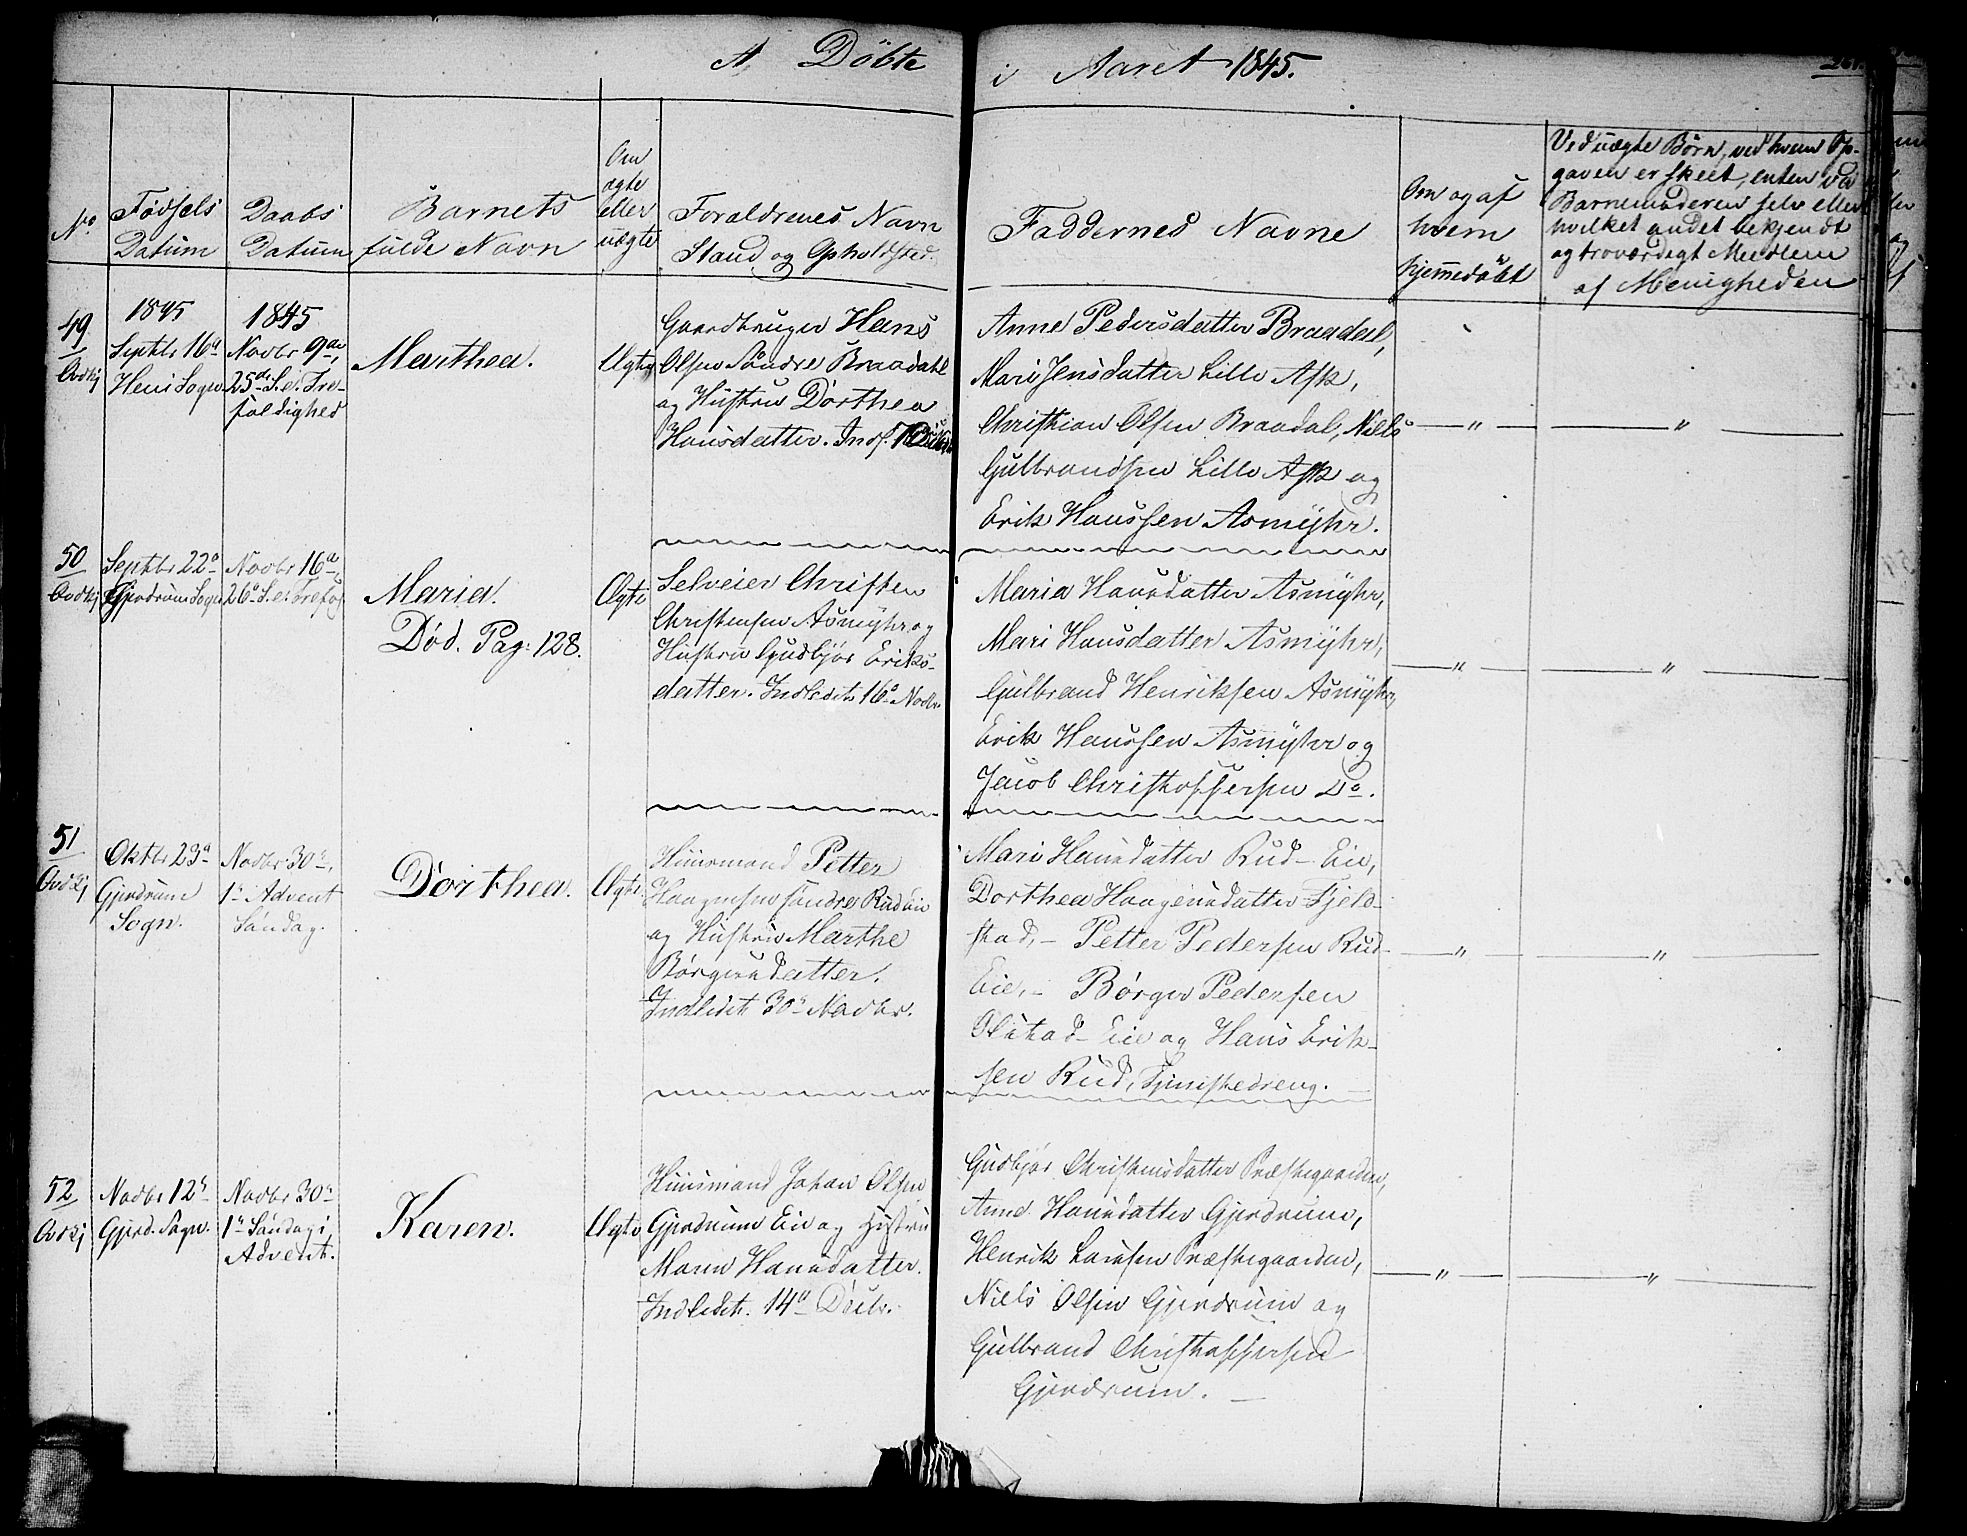 A. Döbte i Aaret 1845.
No
Fødsels
Datum
Daabs
Datum
Barnets
fulde Navn
Om
ægte
eller
uægte
Forældrenes Navn
Stand og Opholdsted.
Faddernes Navne
Om og af
hvem
hjemmedöbt
Ved uægte Börn, ved hvem Op-
gaven er skeet, enten
Barnemoderen selv eller
hvilket andet bekjendt
og troværdigt Medlem
af Menigheden
49
Ovdkj
1845
Septbr 16de
Heni Sogn
1845
Novbr 9de,
25de S. e. Tre-
foldighed
Marthea.
Ægte
Gaardbruger Hans
Olsen Söndre Braadahl
og Hustru Dorthea
Hansdatter. Indl.
Anne Pedersdatter Braadal,
Mari Jensdatter Lille Ask,
Christian Olsen Braadal, Niels
Gulbrandsen Lille Ask og
Erik Hanssen Asmÿhr.
— " — — " —
50
Ovdkj
Septbr 22de
Gjerdrum Sogn
Novbr 16de,
26de S. e. Trefol
Maria.
Död. Pag: 128.
Ægte
Selveier Christen
Christensen Asmÿhr og
Hustru Gudbjör Eriks-
datter. Indledet 16de Novbr.
Maria Hansdatter Asmÿhr,
Mari Hansdatter Asmÿhr,
Gulbrand Henriksen Asmÿhr,
Erik Hanssen Asmÿhr og
Jacob Christoffersen Do.
— " — — " —
51
Ovdkj
Oktbr 23de
Gjerdrum
Sogn.
Novbr 30te,
1te Advent
Söndag.
Dorthea.
Ægte
Huusmand Petter
Haagensen söndre Rud eie
og Hustru Marthe
Börgersdatter.
Indledet 30te Novbr.
Mari Hansdatter Rud-Eie,
Dorthea Haagensdatter Fjeld-
stad, - Petter Pedersen Rud-
Eie, - Börger Pedersen
Olstad-Eie og Hans Erik-
sen Rud, Tjenistedreng. —
— " — — " —
52
Ovdkj
Novbr 12te
Gjerd. Sogn.
Novbr 30te
1te Söndag i
Advent.
Karen.
Ægte
Huusmand Johan Olsen
Gjerdrum Eie og Hustru
Maren Hansdatter.
Indledet. 14de Decbr.
Gudbjör Christensdatter Præstegaarden,
Anne Hansdatter Gjerdrum,
Henrik Larssen Præstegaarden,
Niels Olsen Gjerdrum og
Gulbrand Christoffersen
Gjerdrum. —
— " — — " —